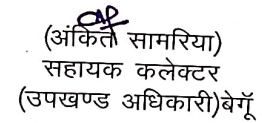 (अंकित सामरिया)
सहायक कलेक्टर
(उपखण्ड अधिकारी)बेगूॅ